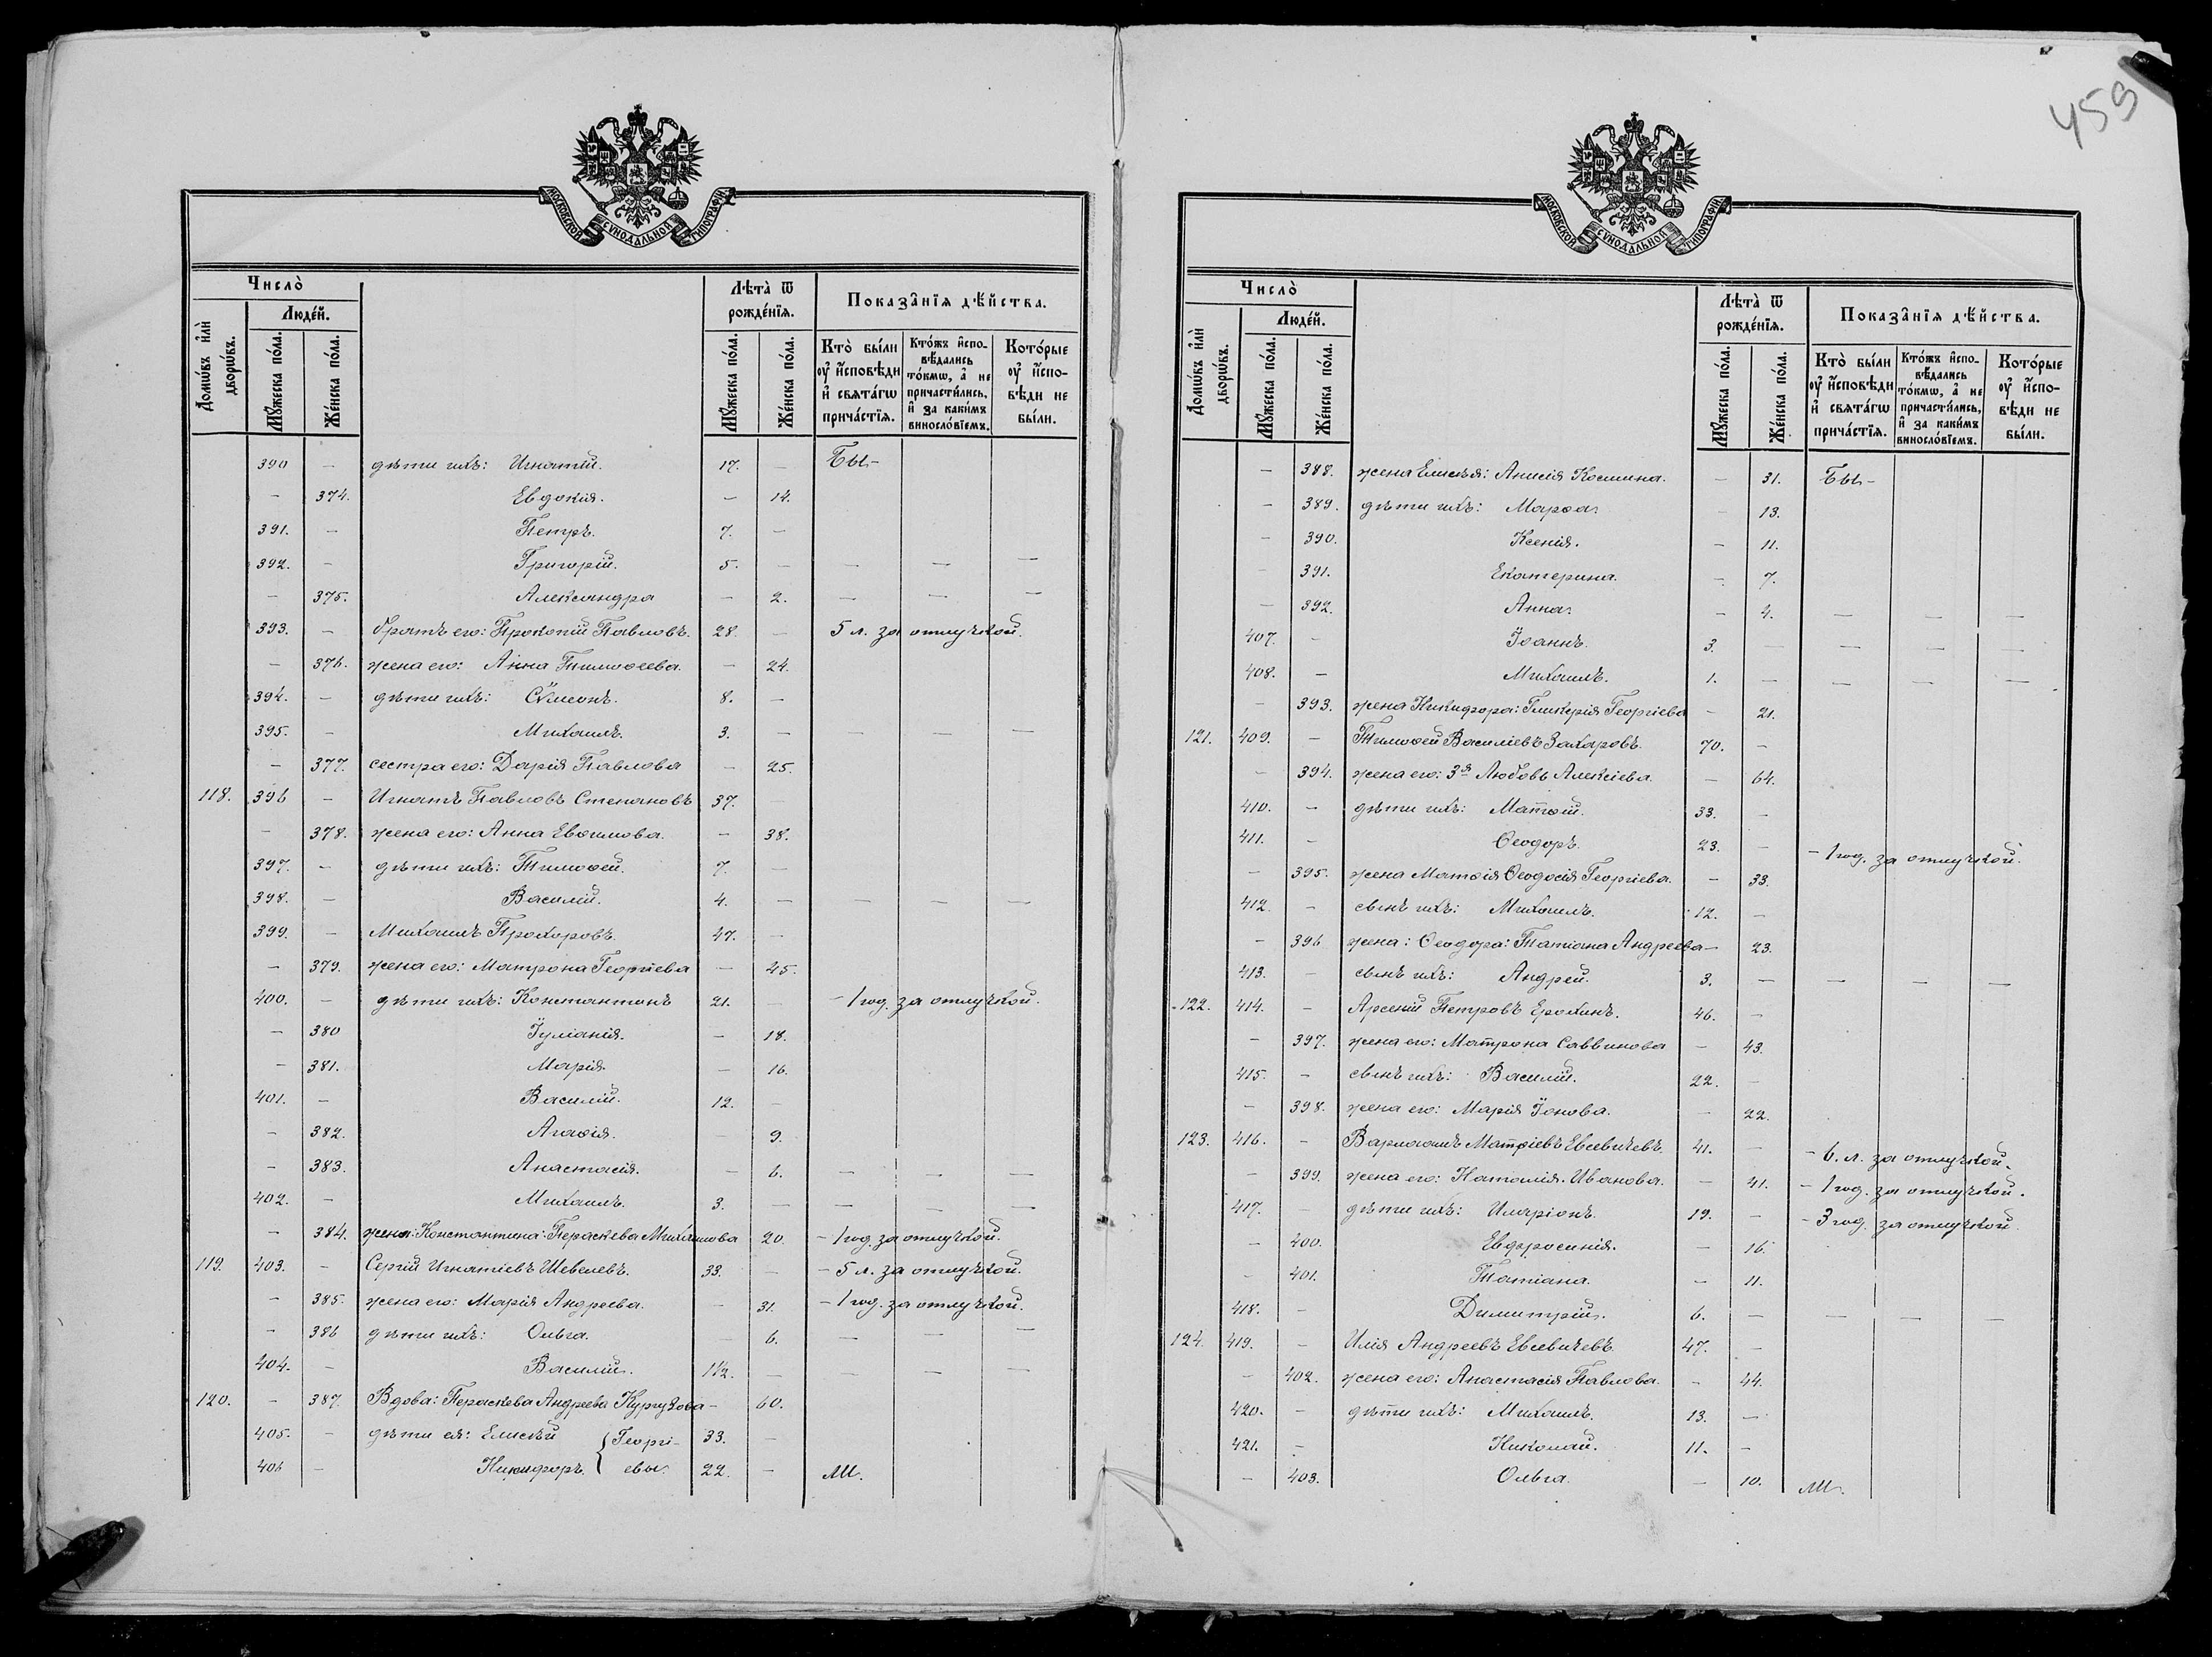 459
МОСКОВСКОЙ СѴНОДАЛЬНОЙ ТИПОГРАФІИ
Число̀
Домѡ́въ и҆лѝ дворѡ́въ.
Люде́й.
Мꙋ́жеска по́ла.
Же́нска по́ла.
Лѣ́та ѿ рожде́нїѧ.
Мꙋ́жеска по́ла.
Же́нска по́ла.
Показа̂нїѧ дѣ́йства.
Кто̀ бы́ли ᲂу҆ и҆́сповѣди и҆ свѧта́гѡ прича́стїѧ.
Кто́жъ и҆спо-вѣ́дались то́кмѡ, а҆ не причасти́лись, и҆ за каки́мъ виносло́вїемъ.
Кото́рые ᲂу҆ и҆́спо-вѣди не бы́ли.
390 — дѣти ихъ: Игнатій. 17. — Бы-
— 374. Евдокія. — 14.
391. — Петръ. 7. —
392. — Григорій. 5. — — — —
— 375. Александра — 2. — — —
393. — братъ его: Прокопій Павловъ. 28. — 5 л. за отлучкой.
— 376. жена его: Анна Тимоѳеева. — 24.
394. — дѣти ихъ: Сѵмеонъ. 8. —
395. — Михаилъ. 3. — — — —
— 377. сестра его: Дарія Павлова — 25.
118. 396 — Игнатъ Павловъ Степановъ 37. —
— 378. жена его: Анна Евѳимова. — 38.
397. — дѣти ихъ: Тимоѳей. 7. —
398. — Василій. 4. — — — —
399. — Михаилъ Прохоровъ. 47. —
— 379. жена его: Матрона Георгіева — 45.
400. — дѣти ихъ: Константинъ 21. — — 1 год. за отлучкой.
— 380 Іуліанія. — 18.
— 381. Марія. — 16.
401. — Василій. 12. —
— 382. Агаѳія. — 9.
— 383. Анастасія. — 6. — — —
402. — Михаилъ. 3. — — — —
— 384. жена: Константина: Параскева Михаилова 20. — 1 год. за отлучкой.
119. 403. — Сергій Игнатіевъ Шевелевъ. 33. — — 5 л. за отлучкой.
— 385. жена его: Марія Андреева. — 31. — 1 год. за отлучкой.
— 386 дѣти ихъ: Ольга. — 6. — — —
404. — Василій. 1 1/2. — — — —
120. — 387. Вдова: Параскева Андреева Кургузова — 60.
405. — дѣти ея: Елисѣй { Георгі- 33. —
406 — Никифоръ. евы. 22. — Ли.
Число̀
Домѡ́въ и҆лѝ дворѡ́въ.
Люде́й.
Мꙋ́жеска по́ла.
Же́нска по́ла.
Лѣ́та ѿ рожде́нїѧ.
Мꙋ́жеска по́ла.
Же́нска по́ла.
Показа̂нїѧ дѣ́йства.
Кто̀ бы́ли ᲂу҆ и҆́сповѣди и҆ свѧта́гѡ прича́стїѧ.
Кто́жъ и҆спо-вѣ́дались то́кмѡ, а҆ не причасти́лись, и҆ за каки́мъ виносло́вїемъ.
Кото́рые ᲂу҆ и҆́спо-вѣди не бы́ли.
МОСКОВСКОЙ СѴНОДАЛЬНОЙ ТИПОГРАФІИ
— 388. жена Елисѣя: Анисія Космина. — 31. Бы-
— 389. дѣти ихъ: Марѳа. — 13.
— 390. Ксенія. — 11.
— 391. Екатерина. — 7.
— 392. Анна. — 4. — — —
407. — Іоаннъ. 3. — — — —
408. — Михаилъ. 1. — — — —
— 393. жена Никифора: Гликерія Георгіева — 21.
121. 409. — Тимоѳей Василіевъ Захаровъ. 70. —
— 394. жена его: 3я Любовь Алексіева. — 64.
410. — дѣти ихъ: Матѳій. 33. —
411. — Ѳеодоръ. 23. — — 1 год. за отлучкой.
— 395. жена Матѳія Ѳеодосія Георгіева. — 33.
412. — сынъ ихъ: Михаилъ. 12. —
— 396 жена: Ѳеодора: Татіана Андреева — 23.
413. — сынъ ихъ: Андрей. 3. — — — —
122. 414. — Арсеній Петровъ Ерохинъ. 46. —
— 397. жена его: Матрона Саввинова — 43.
415. — сынъ ихъ: Василій. 22. —
— 398. жена его: Марія Іонова. — 22.
123. 416. — Варлаамъ Матѳіевъ Евсевичевъ. 41. — — 6. л. за отлучкой.
— 399. жена его: Наталія Иванова. — 41. — 1 год. за отлучкой.
417. — дѣти ихъ: Иларіонъ. 19. — — 3 год. за отлучкой
— 400. Евфросинія. — 16.
— 401. Татіана. — 11.
418. — Димитрій. 6. — — — —
124. 419. — Илія Андреевъ Евсевичевъ. 47. —
— 402. жена его: Анастасія Павлова. — 44.
420. — дѣти ихъ: Михаилъ. 13. —
421. — Николай. 11. —
— 403. Ольга. — 10. Ли.